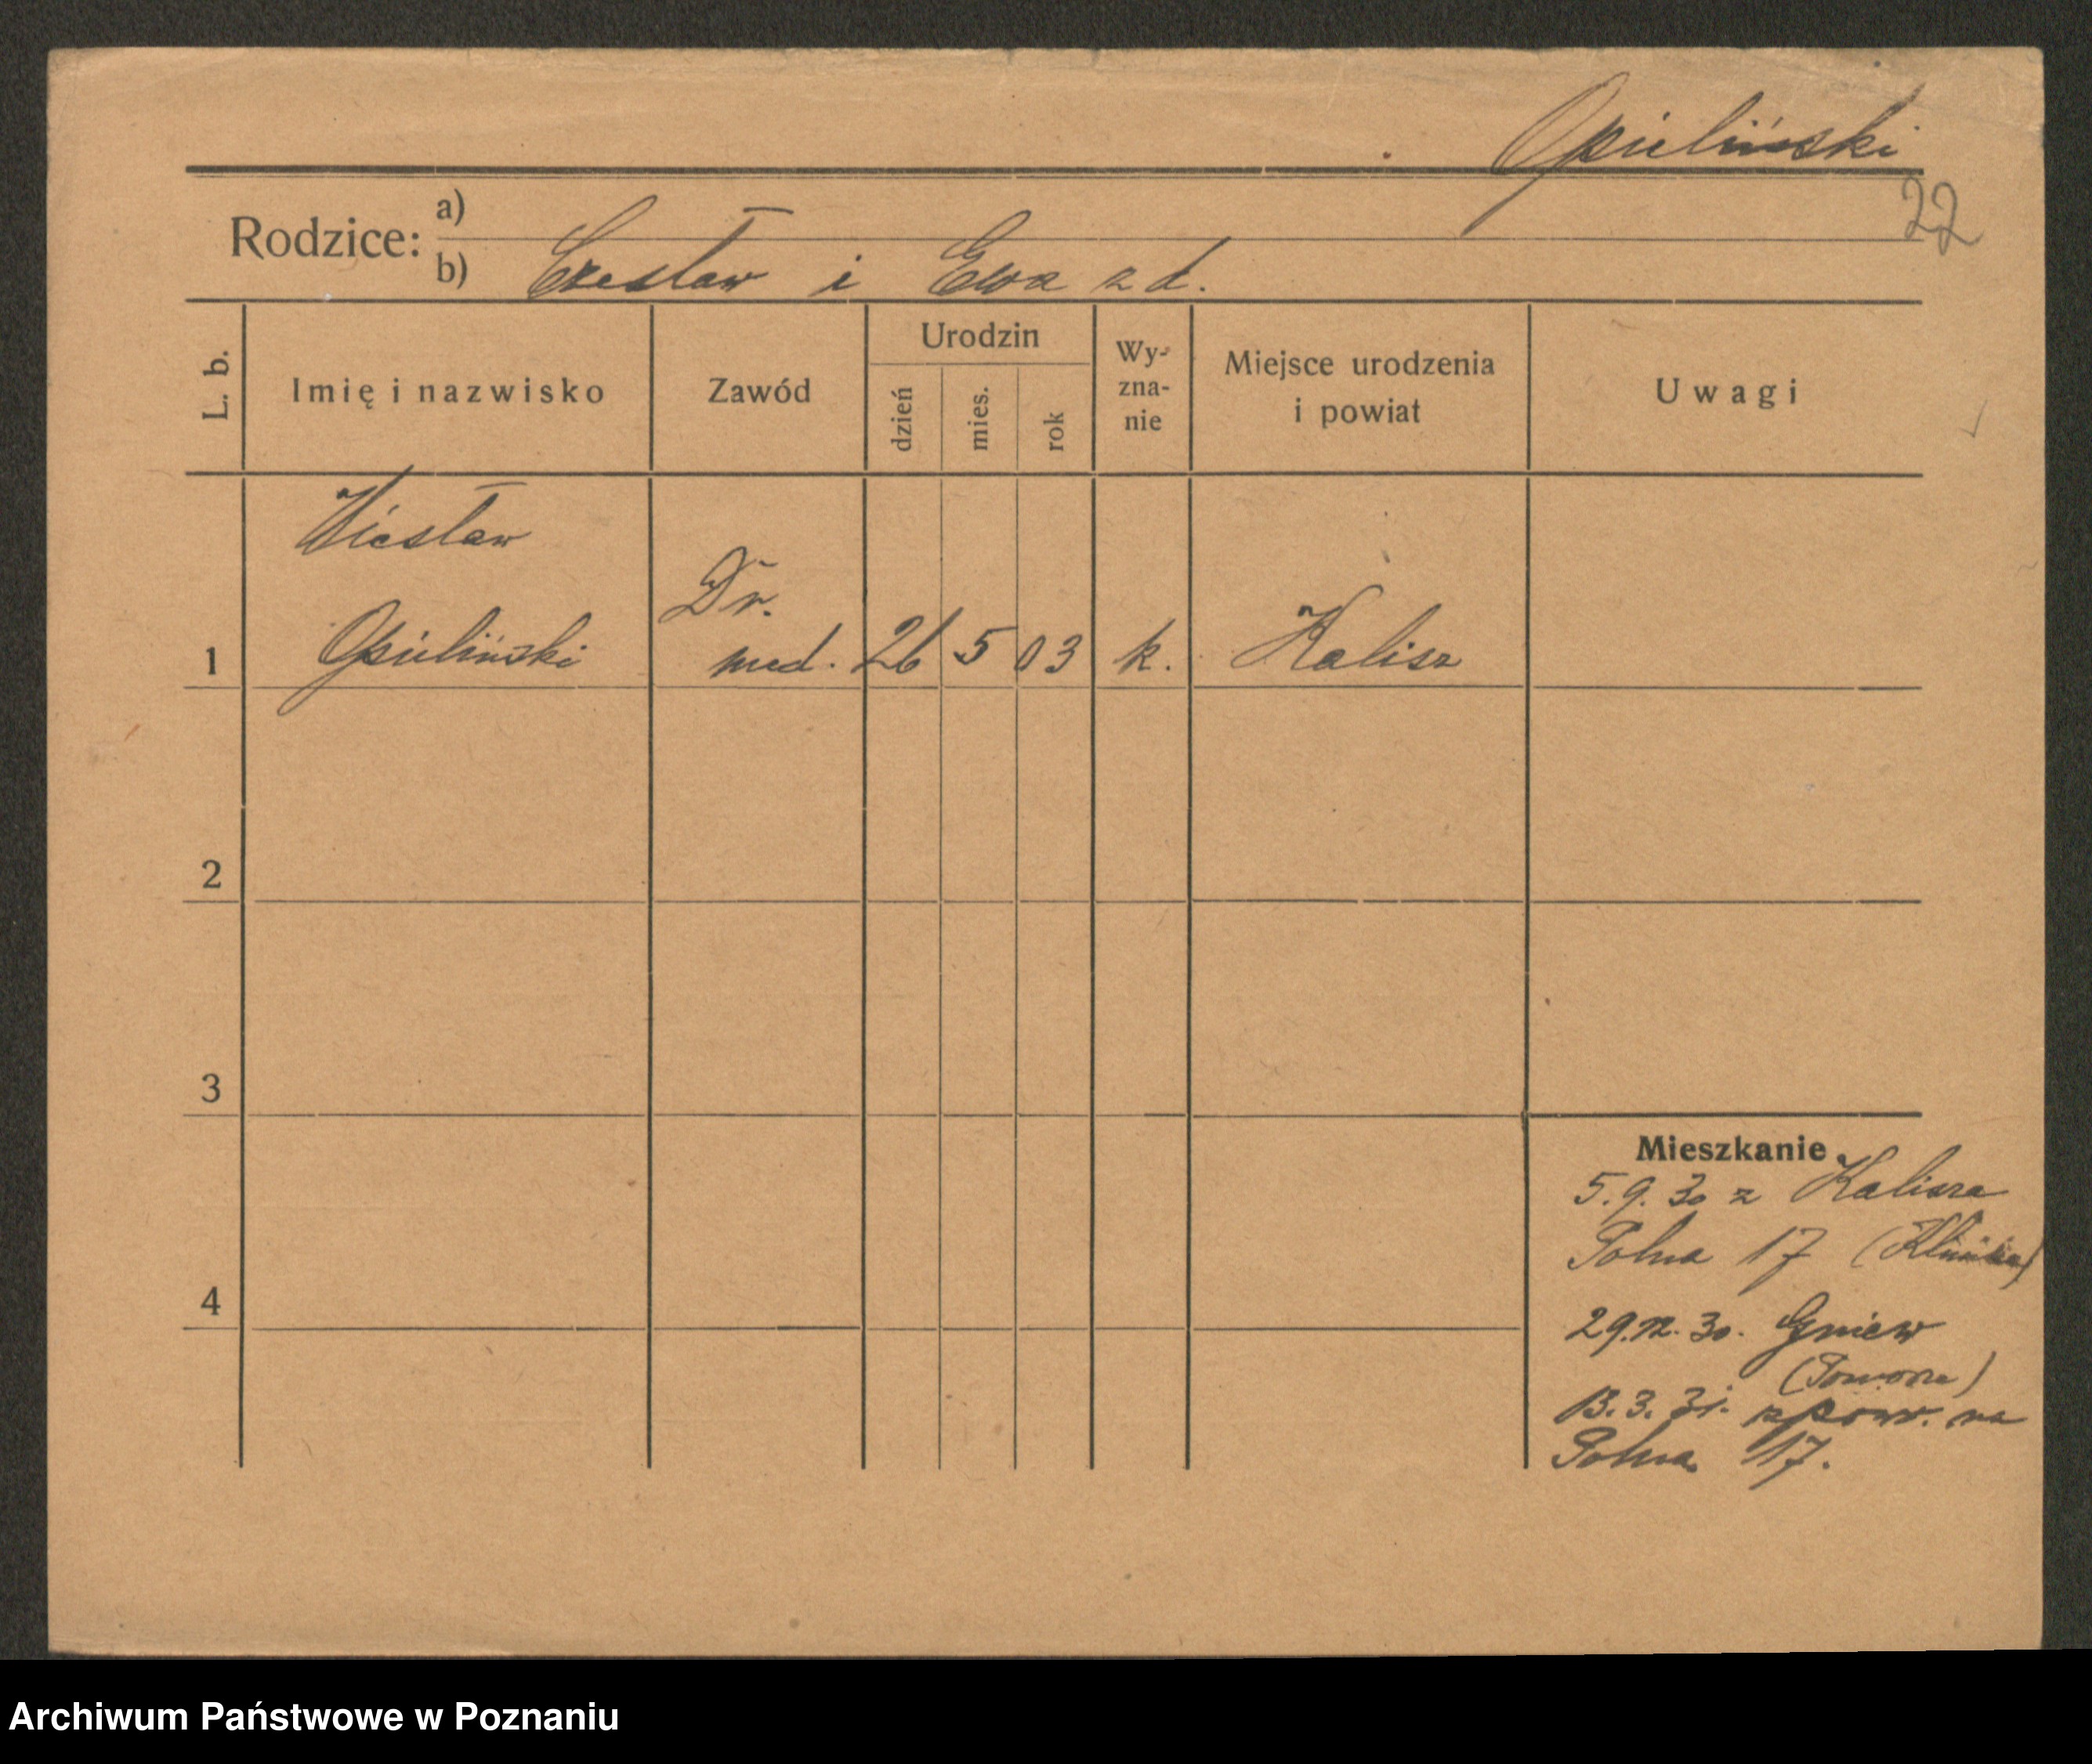 Opieliński
22
Rodzice: a)
b) Czesław i Ewa z d.
L. b.
Imię i nazwisko
Zawód
Urodzin
dzień
mies.
rok
Wy-
zna-
nie
Miejsce urodzenia
i powiat
Uwagi
Wiesław
Dr.
1 Opieliński med. 26 5 03 k. Kalisz
2
3
4
Mieszkanie
5.9.30 z Kalisza
Polna 17 (Klinika)
29.12.30. Gniew
(Pomorze)
13.3.31. z pow. na
Polna 17.
Archiwum Państwowe w Poznaniu